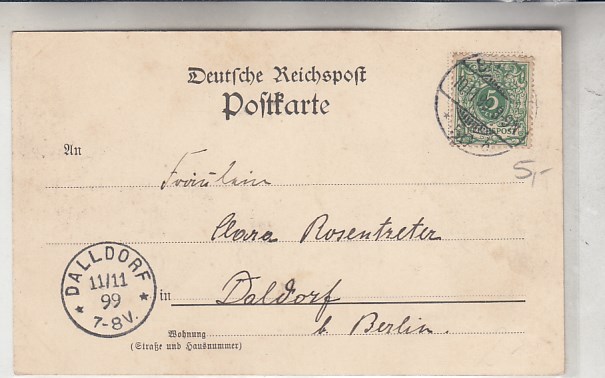 Deutsche Reichspost
Postkarte
5
REICHSPOST
5,-
An
Fräulein
Clara Rosentreter
DALLDORF
11/11
99
7-8V.
in Daldorf
b. Berlin.
Wohnung
(Straße und Hausnummer)